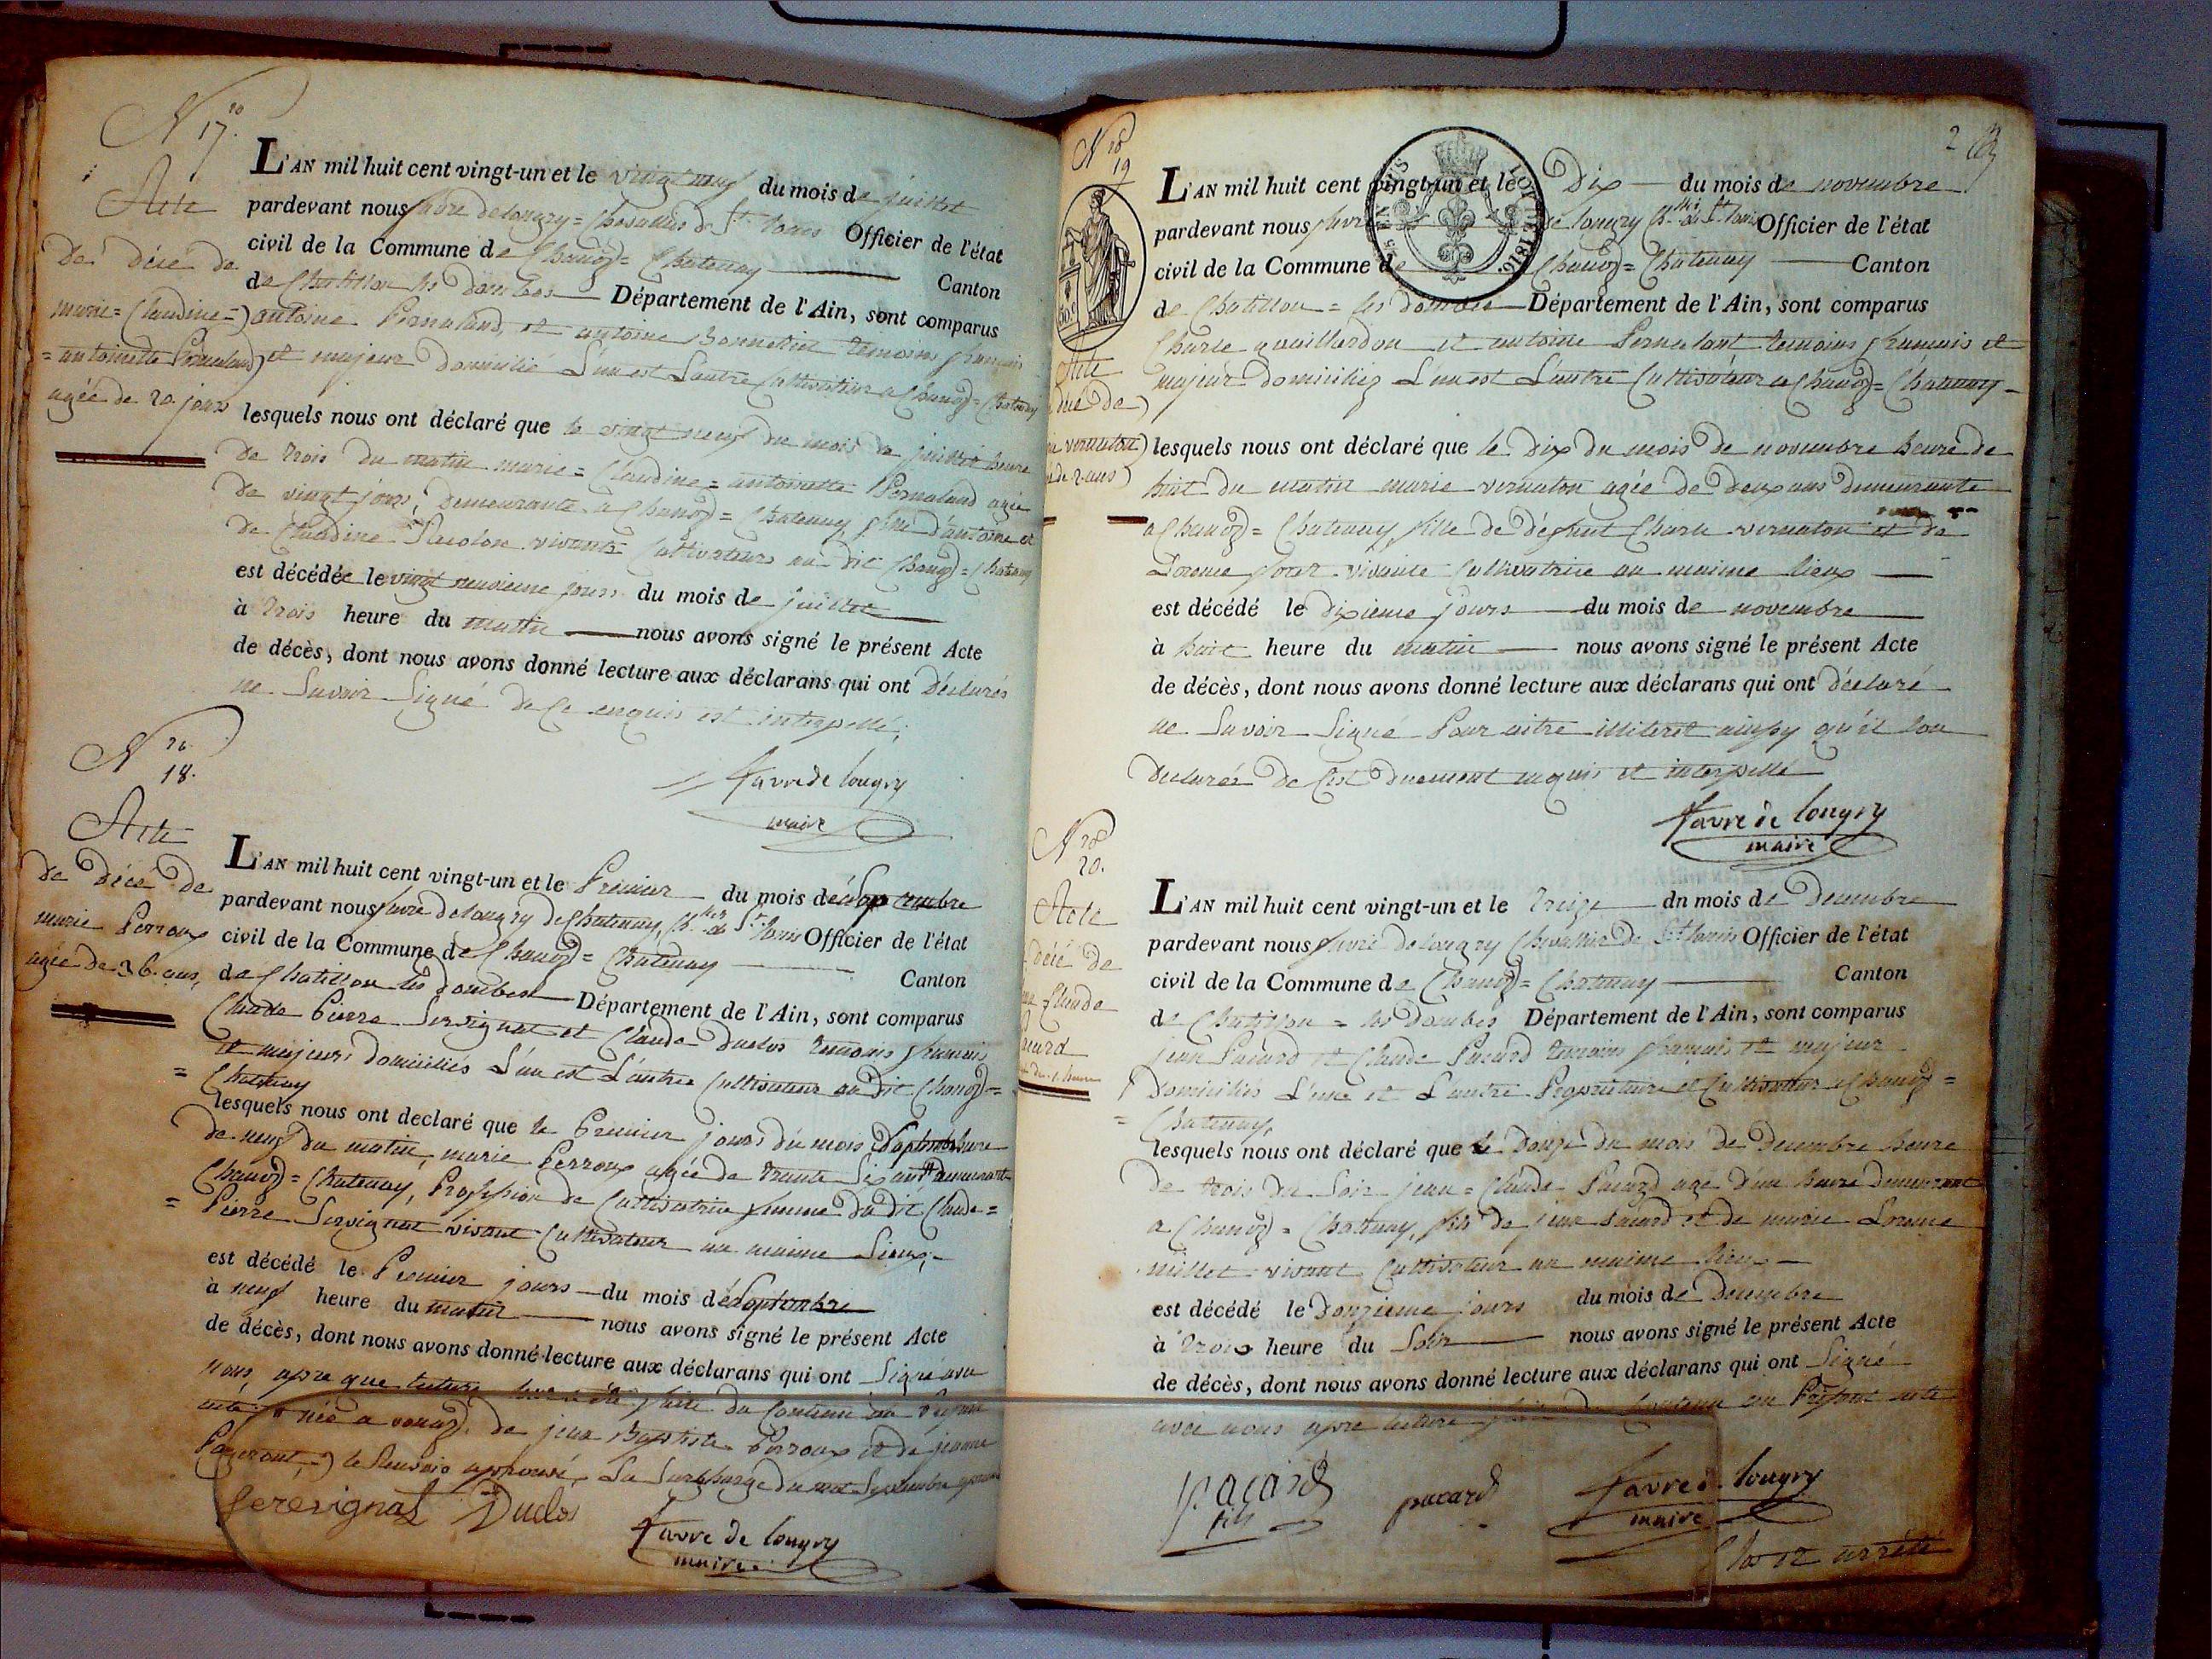 N.º 17.
Acte
De Décé de
marie = Claudine =
= antoinette Pernaland
agée de 20 jours
L'AN mil huit cent vingt-un et le vingt neuf du mois de juillet
pardevant nous favre delongry = Chevallier de St Louis Officier de l'état
civil de la Commune de Chanoz = Chatenay Canton
de Chatillon les Dombes Département de l'Ain, sont comparus
antoine Pernaland, et antoine Bonnetiet temoins francais
et majeur Domicilié L'un est L'autre Cultivateur a Chanoz = Chatenay
lesquels nous ont déclaré que le vingt neuf du mois de juillet heure
De trois du matin marie = Claudine = antoinette Pernaland agée
De vingt jours, Demeurante a Chanoz = Chatenay, fille d'antoine et
de Claudine vivants Cultivateurs au dit Chanoz = Chatenay
est décédée le vingt neuvieme jours du mois de juillet
à trois heure du matin nous avons signé le présent Acte
de décès, dont nous avons donné lecture aux déclarans qui ont Déclarés
ne Savoir Signé de Ce enquis est interpellé,
favre de longry
maire
N.º 18.
Acte
De Décé de
marie Perroux
agée de 36 ans,
L'AN mil huit cent vingt-un et le Premier du mois de Septembre
pardevant nous favre delongry de Chatenay, Ch.ller de St Louis Officier de l'état
civil de la Commune de Chanoz = Chatenay Canton
de Chatillon les Dombes Département de l'Ain, sont comparus
Claude Pierre Servignat et Claude Duclos temoins francais
et majeurs domiciliés L'un est L'autre Cultivateur au dit Chanoz =
= Chatenay
lesquels nous ont declaré que le Premier jours du mois Septembre heure
De neuf du matin, marie Perroux agée de trente Six ans demeurante
Chanoz = Chatenay, Profession de Cultivatrice femme du dit Claude =
= Pierre Servignat vivant Cultivateur au maime Lieux,
est décédé le Premier jours du mois de Septembre
à neuf heure du matin nous avons signé le présent Acte
de décès, dont nous avons donné lecture aux déclarans qui ont Signé avec
nous, apre que lecture leur a été faite du Contenu du Présent
acte née a vonnaz, de jean Baptiste Perroux et de jeanne
le Renvoie approuvé, La Surcharge du mot Septembre
Serevignat Duclos
favre de longry
maire
2
N.º 19
Acte
décé de
vernaton
de 2 ans
L'AN mil huit cent vingt-un et le Dix du mois de novembre
pardevant nous favre de longry Ch.ller de St Louis Officier de l'état
civil de la Commune de Chanoz = Chatenay Canton
de Chatillon = les dombes Département de l'Ain, sont comparus
Charle guaillardon et antoine Pernalant temoins francais et
majeur domiciliez L'un est L'autre Cultivateur a Chanoz = Chatenay
lesquels nous ont déclaré que le Dix du mois de novembre heure de
huit du matin marie vernaton agée de Deux ans demeurante
a Chanoz = Chatenay, fille de défunt Charle vernaton et de
Lorence vivante Cultivatrice au maime lieux
est décédé le dixieme jours du mois de novembre
à huit heure du matin nous avons signé le présent Acte
de décès, dont nous avons donné lecture aux déclarans qui ont déclaré
ne Savoir Signé Pour aitre illiteret ainsy qu'il lon
Declarés De Cest Duement enquis et interpellé
favre de longry
maire
N.º 20.
Acte
décé de
Claude
Pacard
L'AN mil huit cent vingt-un et le Treize du mois de Decembre
pardevant nous favre delongry Chevallier de St Louis Officier de l'état
civil de la Commune de Chanoz = Chatenay Canton
de Chatillon = les Dombes Département de l'Ain, sont comparus
jean Pacard et Claude Pacard temoins francais et majeur
Domiciliés L'une et L'autre Propriétaire et Cultivateur a Chanoz =
= Chatenay,
lesquels nous ont déclaré que le Douze du mois de Decembre heure
De trois du Soir jean = Claude Pacard age d'un heure Demeurant
a Chanoz = Chatenay, fils de jean Pacard et de marie Lorence
millet vivant Cultivateur au maime lieux
est décédé le Douzieme jours du mois de Decembre
à trois heure du Soir nous avons signé le présent Acte
de décès, dont nous avons donné lecture aux déclarans qui ont Signé
avec nous apre lecture faite du Contenu au Présent acte
pacard
fils
pacard
favre de longry
maire
Clos et arrêté